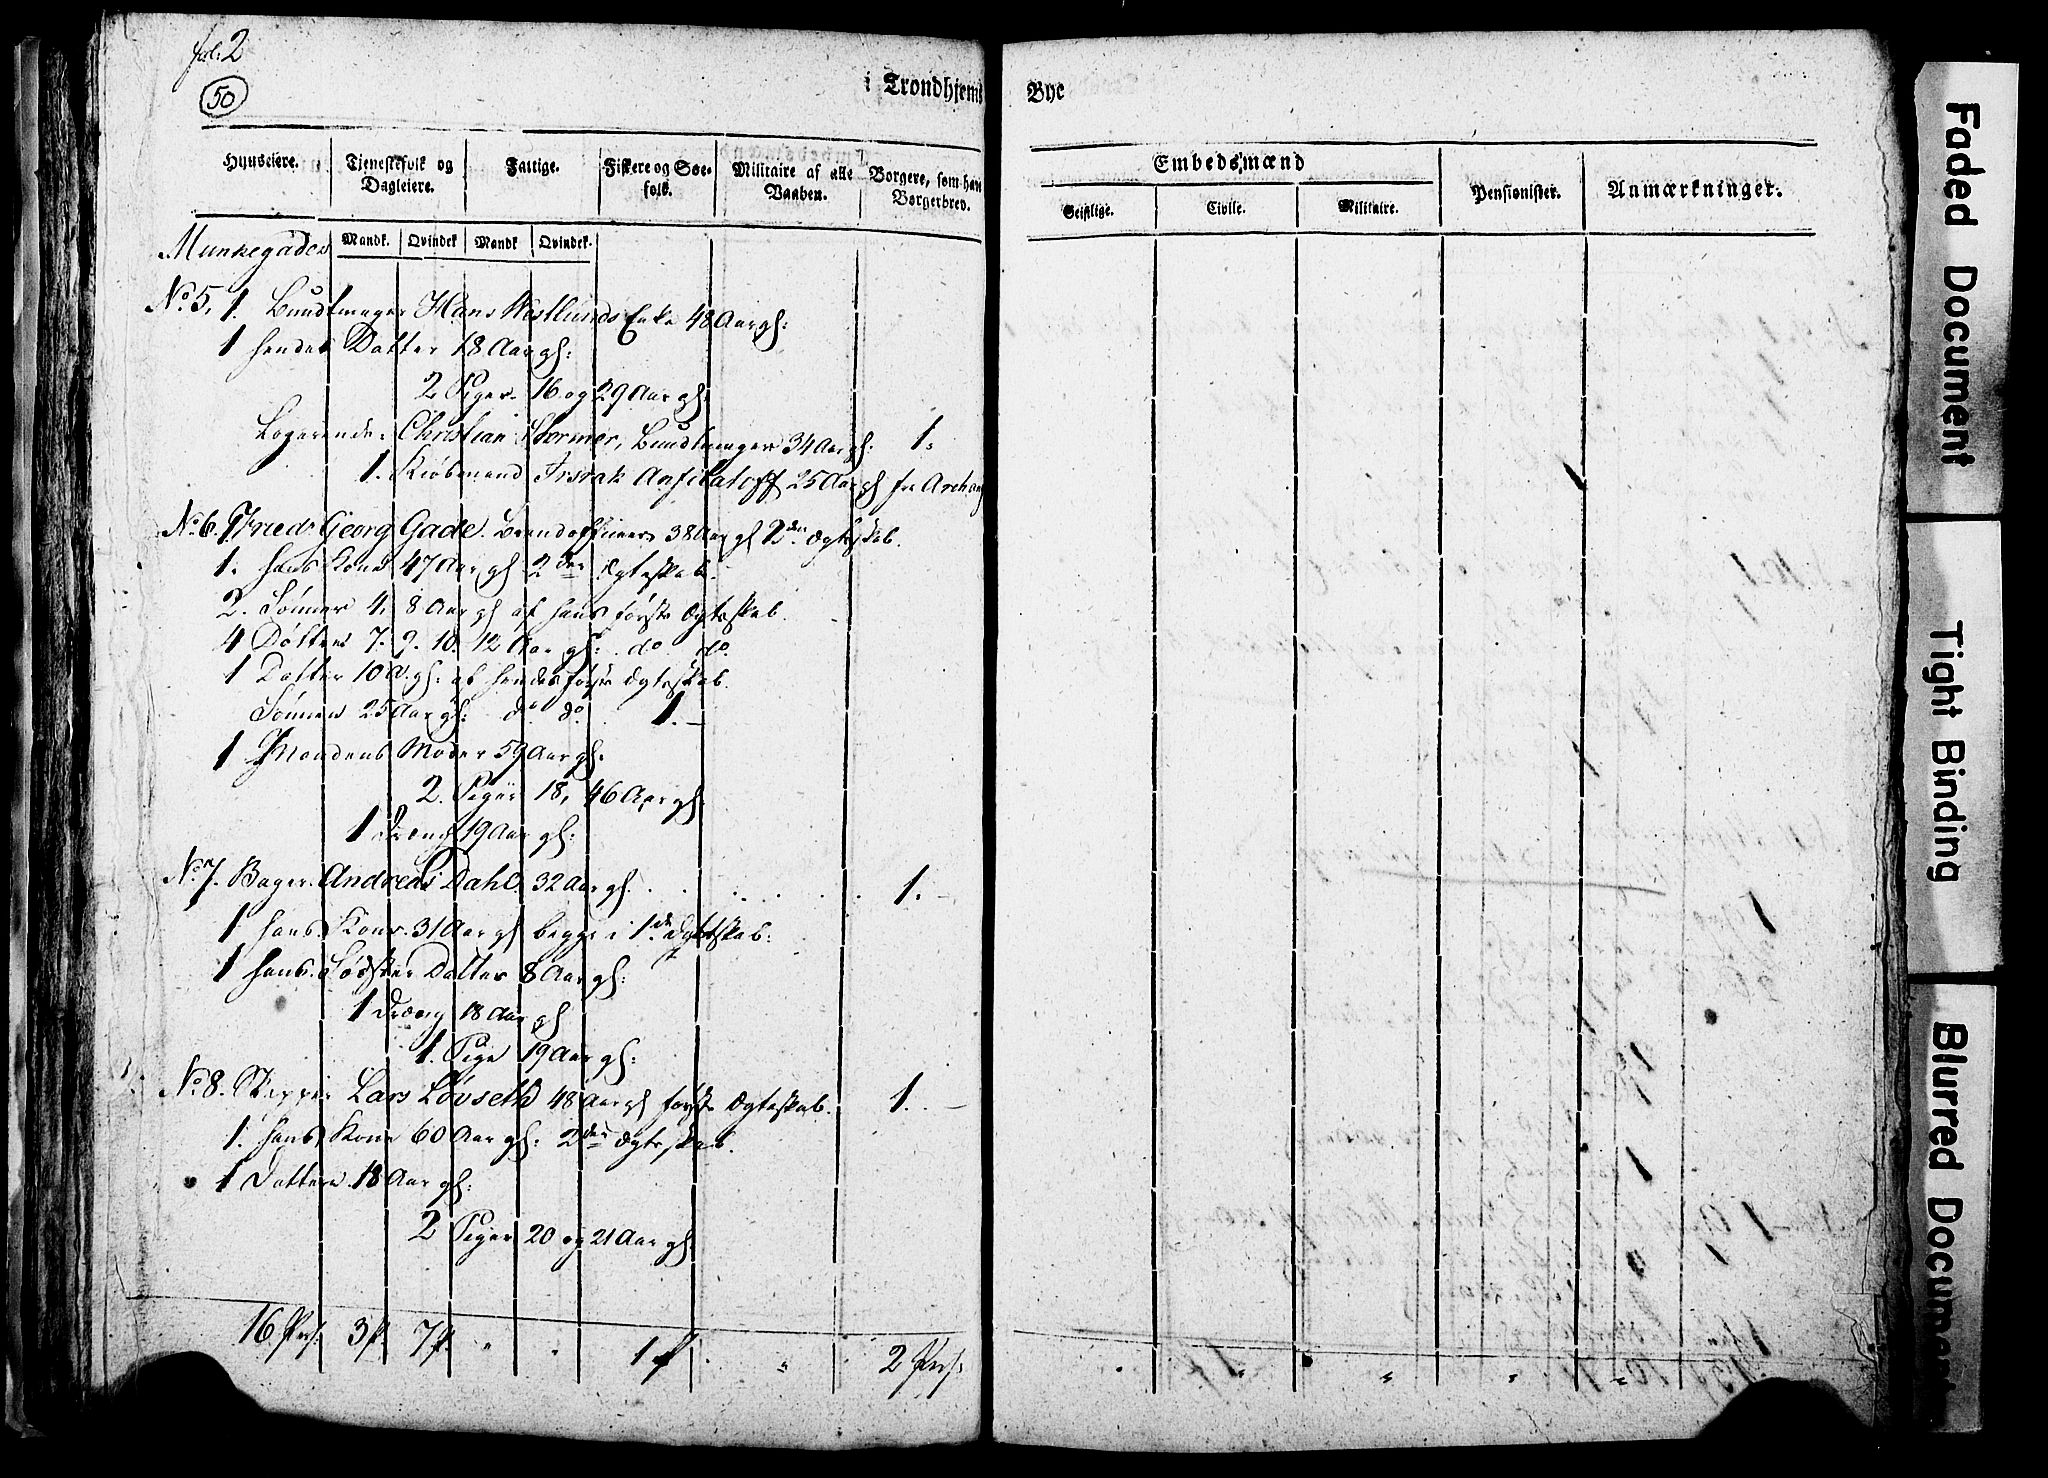 fol: 2
50
i Trondhjems Bye
Huuseiere. Tjenestefolk og Dagleiere. Fattige. Fiskere og Søe-folk. Militaire af alle Vaaben. Borgere, som have Borgerbrev. Embedsmænd Pensionister. Anmærkninger.
Geistlige. Civile. Militaire.
Mandk. Qvindek Mandk Qvindek.
Munkegaden
No. 5, 1. Bundtmager Hans Westlunds Enke 48 Aar gl:
1 hendes Datter 18 Aar gl:
2 Piger. 16 og 29 Aar gl:
Logerende: Christian Stormer, Bundtmager 34 Aar gl: 1.
1. Kiøbmand Isrrak Anfilatoff 25 Aar gl fra Archang
No. 6. 1 Fried: Georg Gade. Brandofficeer 38 Aar gl 2den Ægteskab.
1. hans Kone 47 Aar gl 2den Ægteskab.
2. Sønner 4, 8 Aar gl af hans første Ægteskab.
4 Døttre 7. 9. 10. 12 Aar gl: do do.
1 Datter 10 A. gl: af hendes første Ægteskab.
Sønnen 25 Aar gl: do do. 1. –
1 Mandens Moder 59 Aar gl:
2. Piger 18, 46 Aar gl:
1 Dreng 19 Aar gl:
No. 7. Bager. Andreas Dahl. 32 Aar gl. . . . . . 1. –
1 hans Kone. 31 Aar gl begge i 1ste Ægteskab:
1 hans Søster Datter 8 Aar gl:
1 Dreng 18 Aar gl
1. Pige 19 Aar gl:
No. 8. Skipper Lars Løvseth 48 Aar gl første Ægteskab. 1. –
1. hans Kone 60 Aar gl: 2den Ægteskab.
1 Datter 18 Aar gl:
2 Piger 20 og 21 Aar gl:
16 Pers. 3 p. 7 p. " " 1 p . " 2 Pers: " " " " "
Faded Document
Tight Binding
Blurred Document